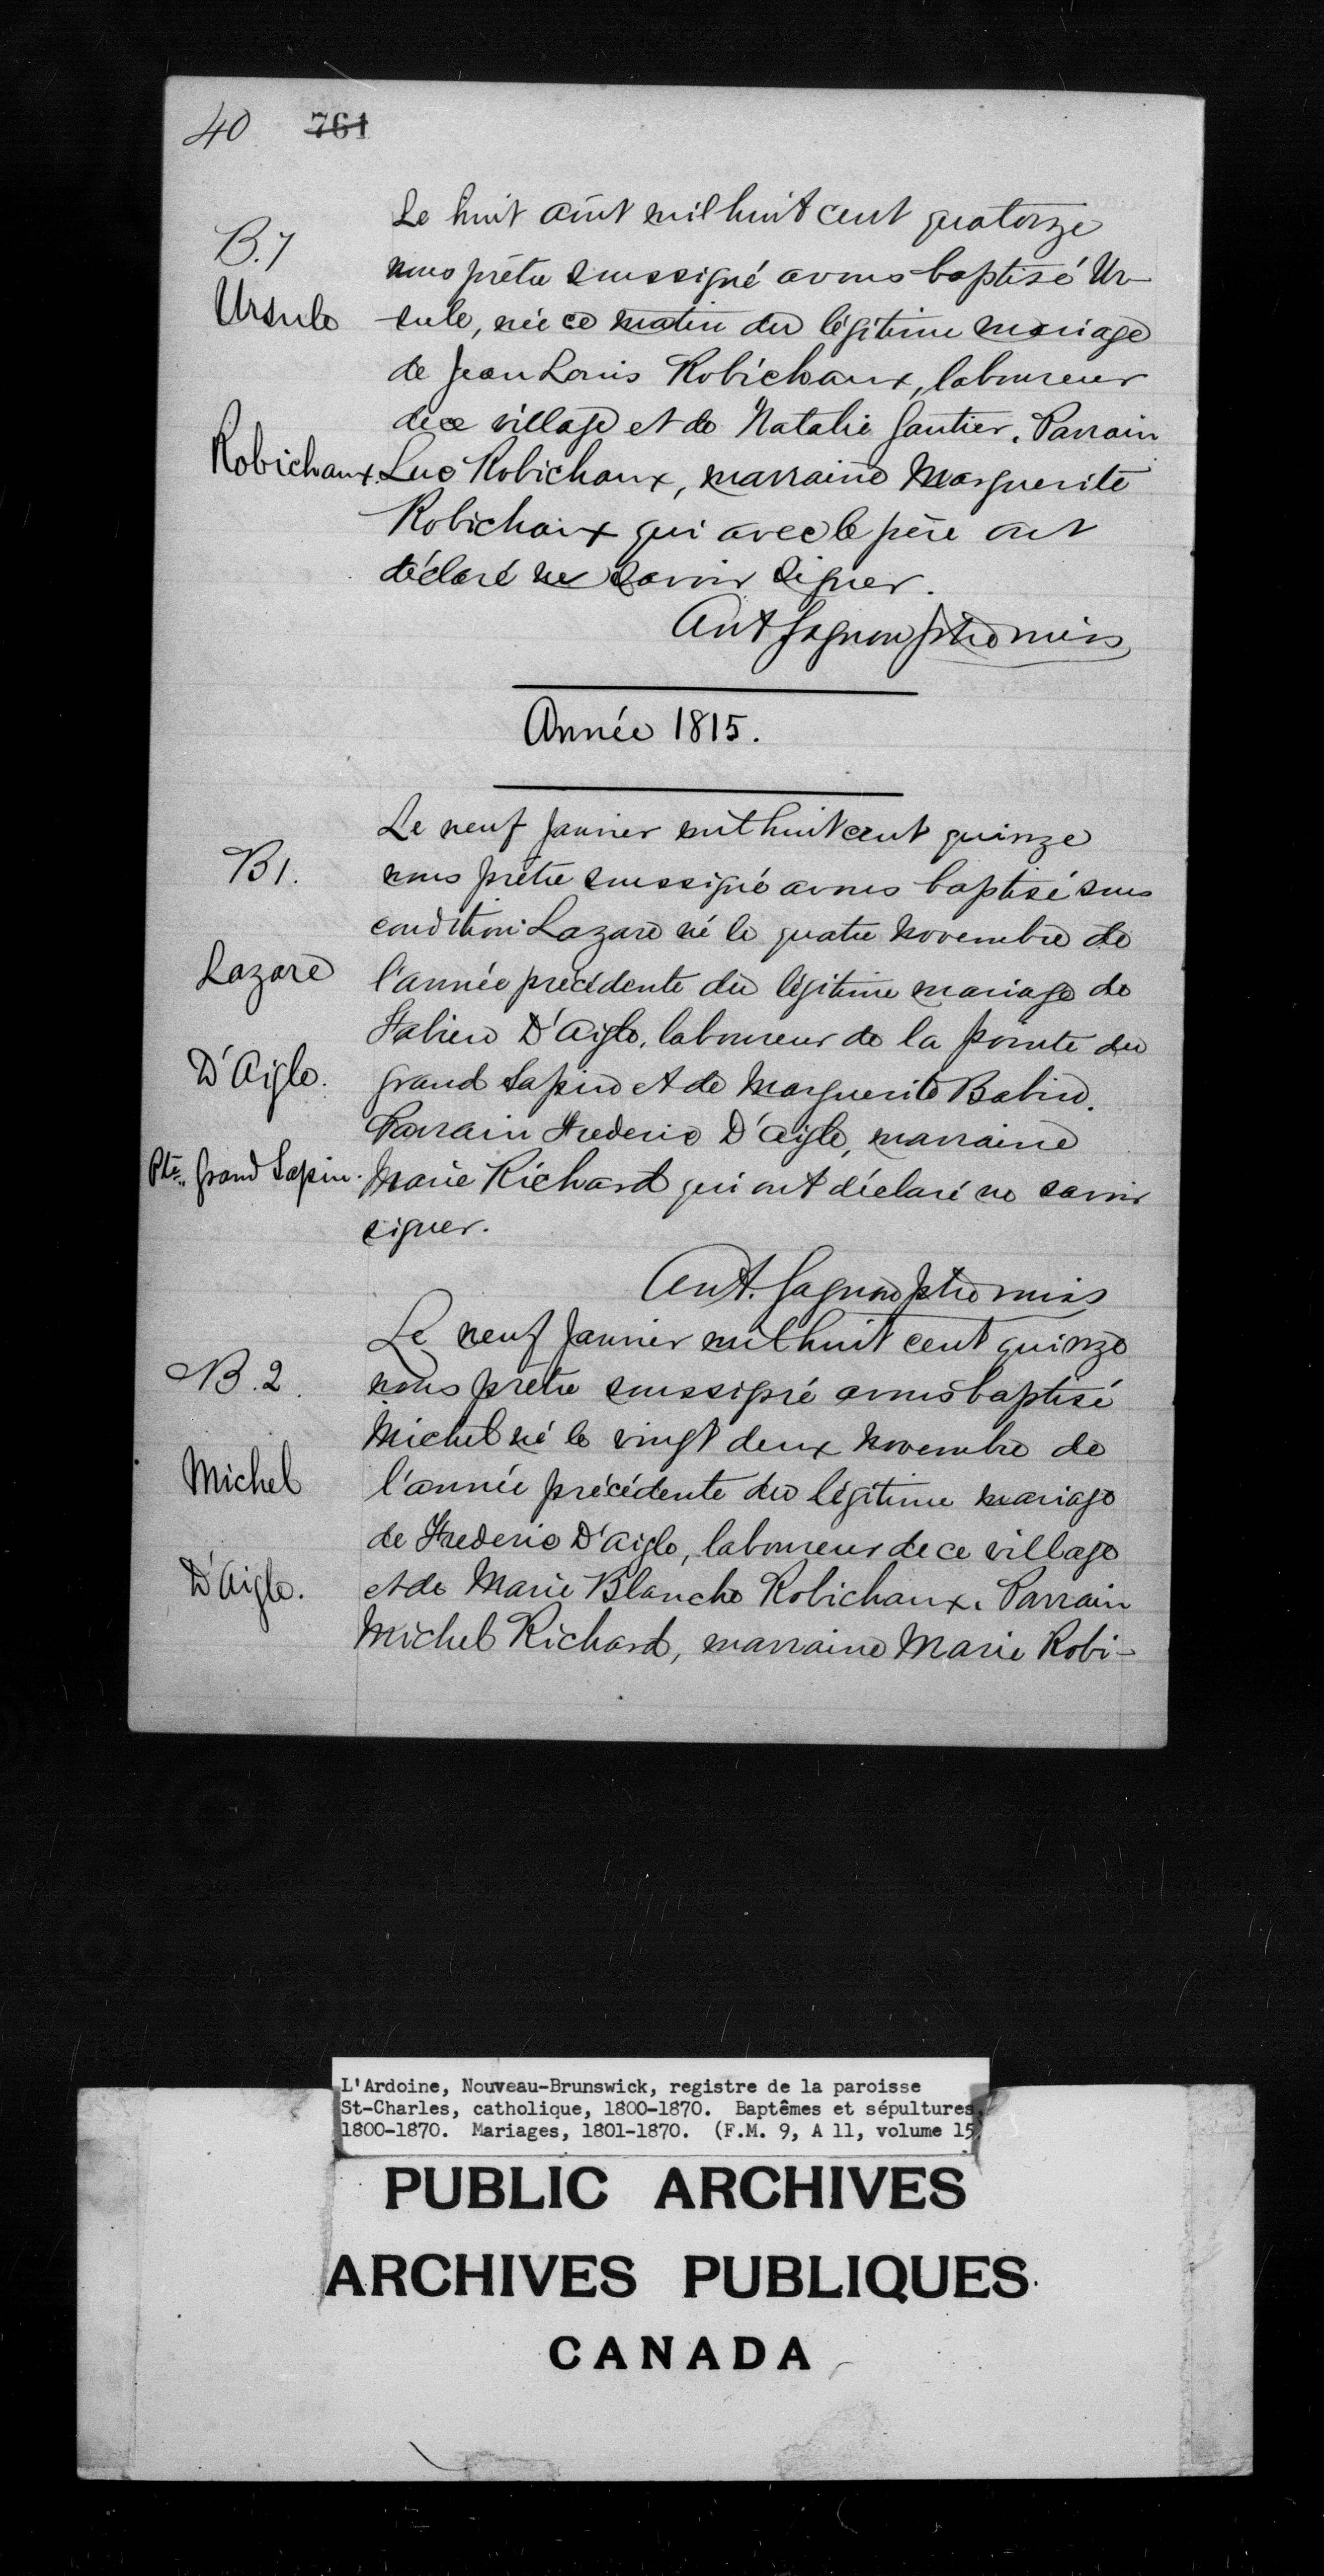 40 761
Le huit août mil huit cent quatorze
B.7
nous prêtre soussigné avons baptisé Ur-
Ursule
sule, née ce matin du légitime mariage
de Jean Louis Robichaux, laboureur
de ce village et de Natalie Gautier. Parrain
Robichaux.
Luc Robichaux, marraine Marguerite
Robichaux qui avec le père ont
déclaré ne savoir signer.
Ant Gagnon ptre miss
Année 1815.
Le neuf Janvier mil huit cent quinze
B1.
nous prêtre soussigné avons baptisé sous
condition Lazare né le quatre Novembre de
Lazare
l'année précédente du légitime mariage de
Fabien D'Aigle, laboureur de la pointe du
D'Aigle.
grand Sapin et de Marguerite Babin.
Parrain Frederic D'Aigle, marraine
Pte. Grand Sapin.
Marie Richard qui ont déclaré ne savoir
signer.
Ant. Gagnon ptre miss
Le neuf Janvier mil huit cent quinze
B.2.
nous prêtre soussigné avons baptisé
Michel né le vingt deux Novembre de
Michel
l'année précédente du légitime mariage
de Frederic D'Aigle, laboureur de ce village
D'Aigle.
et de Marie Blanche Robichaux. Parrain
Michel Richard, marraine Marie Robi-
L'Ardoine, Nouveau-Brunswick, registre de la paroisse
St-Charles, catholique, 1800-1870. Baptêmes et sépultures,
1800-1870. Mariages, 1801-1870. (F.M. 9, A 11, volume 15)
PUBLIC ARCHIVES
ARCHIVES PUBLIQUES
CANADA